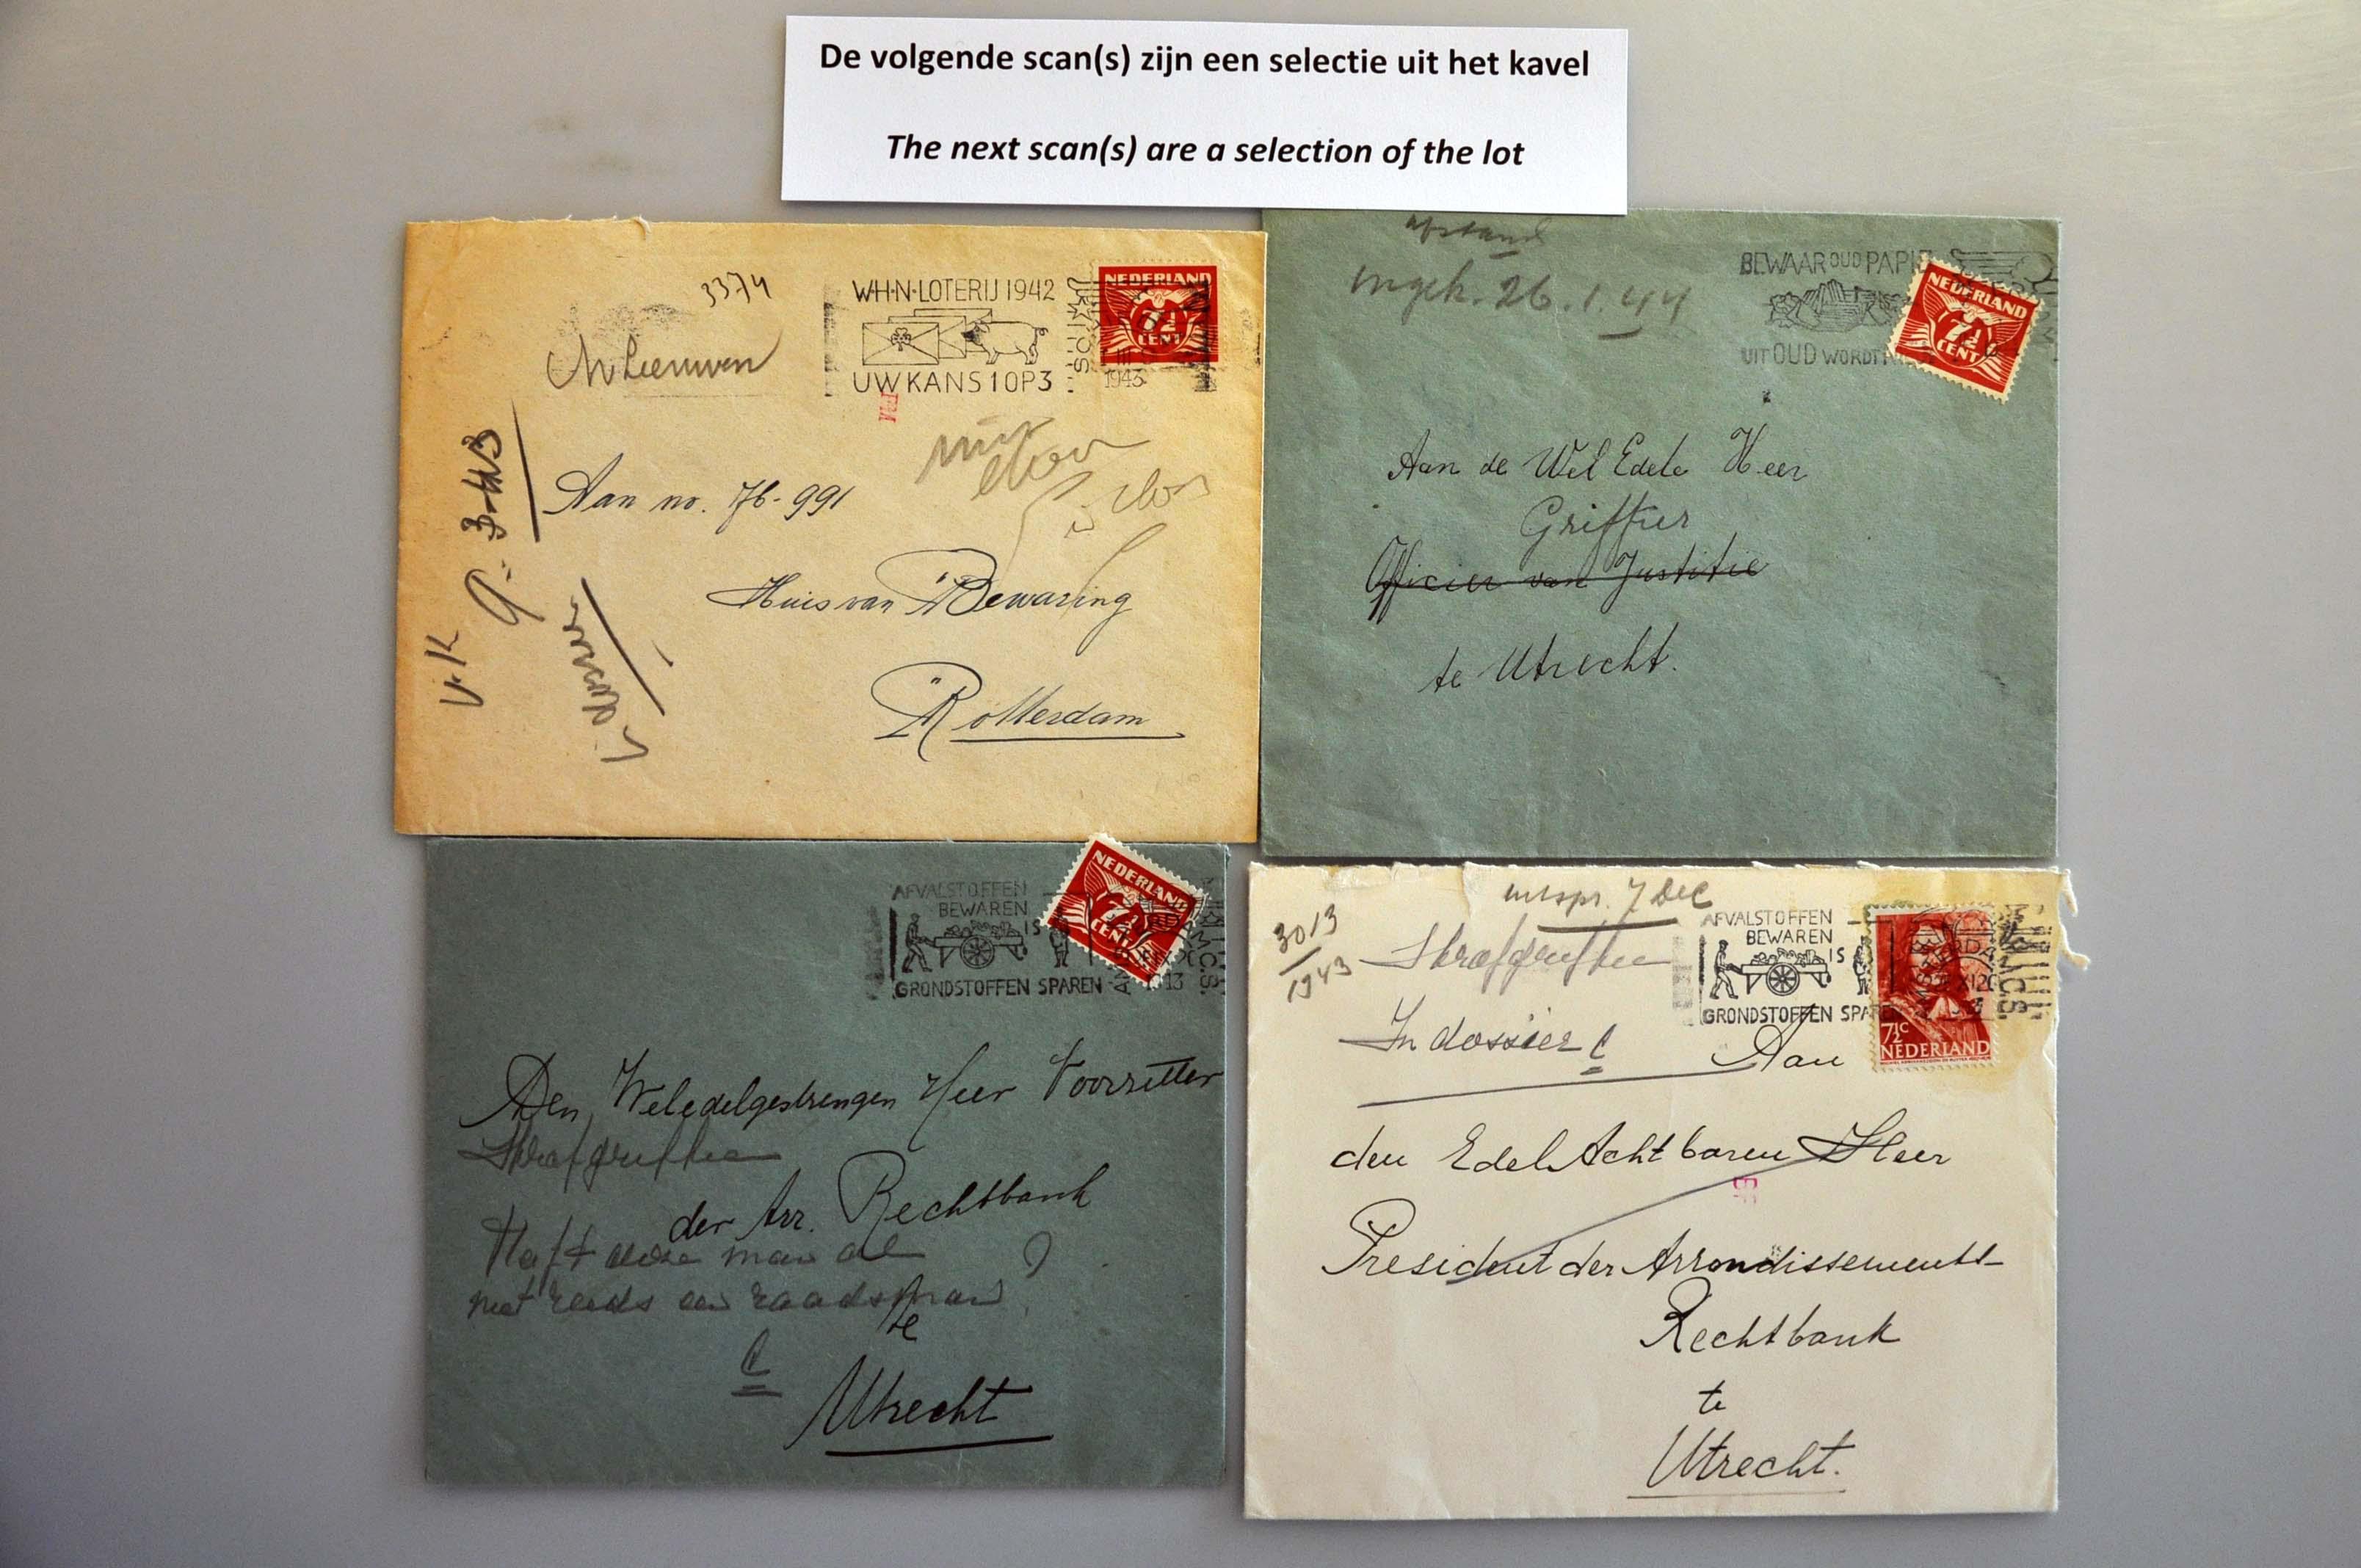 De volgende scan(s) zijn een selectie uit het kavel
The next scan(s) are a selection of the lot
3374
W·H·N·LOTERIJ 1942
UW KANS 1 OP 3
NEDERLAND
7½
CENT
1943
Aan no. 76-991
Huis van Bewaring
Rotterdam
V.K
9-3-43
ingek. 26.1.44
BEWAAR OUD PAPI
UIT OUD WORDT
NEDERLAND
7½
CENT
Aan de Wel Edele Heer
Griffier
Officier van Justitie
te Utrecht.
AFVALSTOFFEN
BEWAREN
IS
GRONDSTOFFEN SPAREN
NEDERLAND
7½
CENT
Den Weledelgestrengen Heer Voorzitter
Strafgriffie
der Arr. Rechtbank
Heeft deze man al
niet reeds een raadsman ?
te
C
Utrecht
3013
1943
uitspr. 7 Dec
Strafgriffie
In dossier C
AFVALSTOFFEN
BEWAREN
IS
GRONDSTOFFEN SPA
7½c
NEDERLAND
Aan
den Edel Achtbaren Heer
President der Arrondissements-
Rechtbank
te
Utrecht.